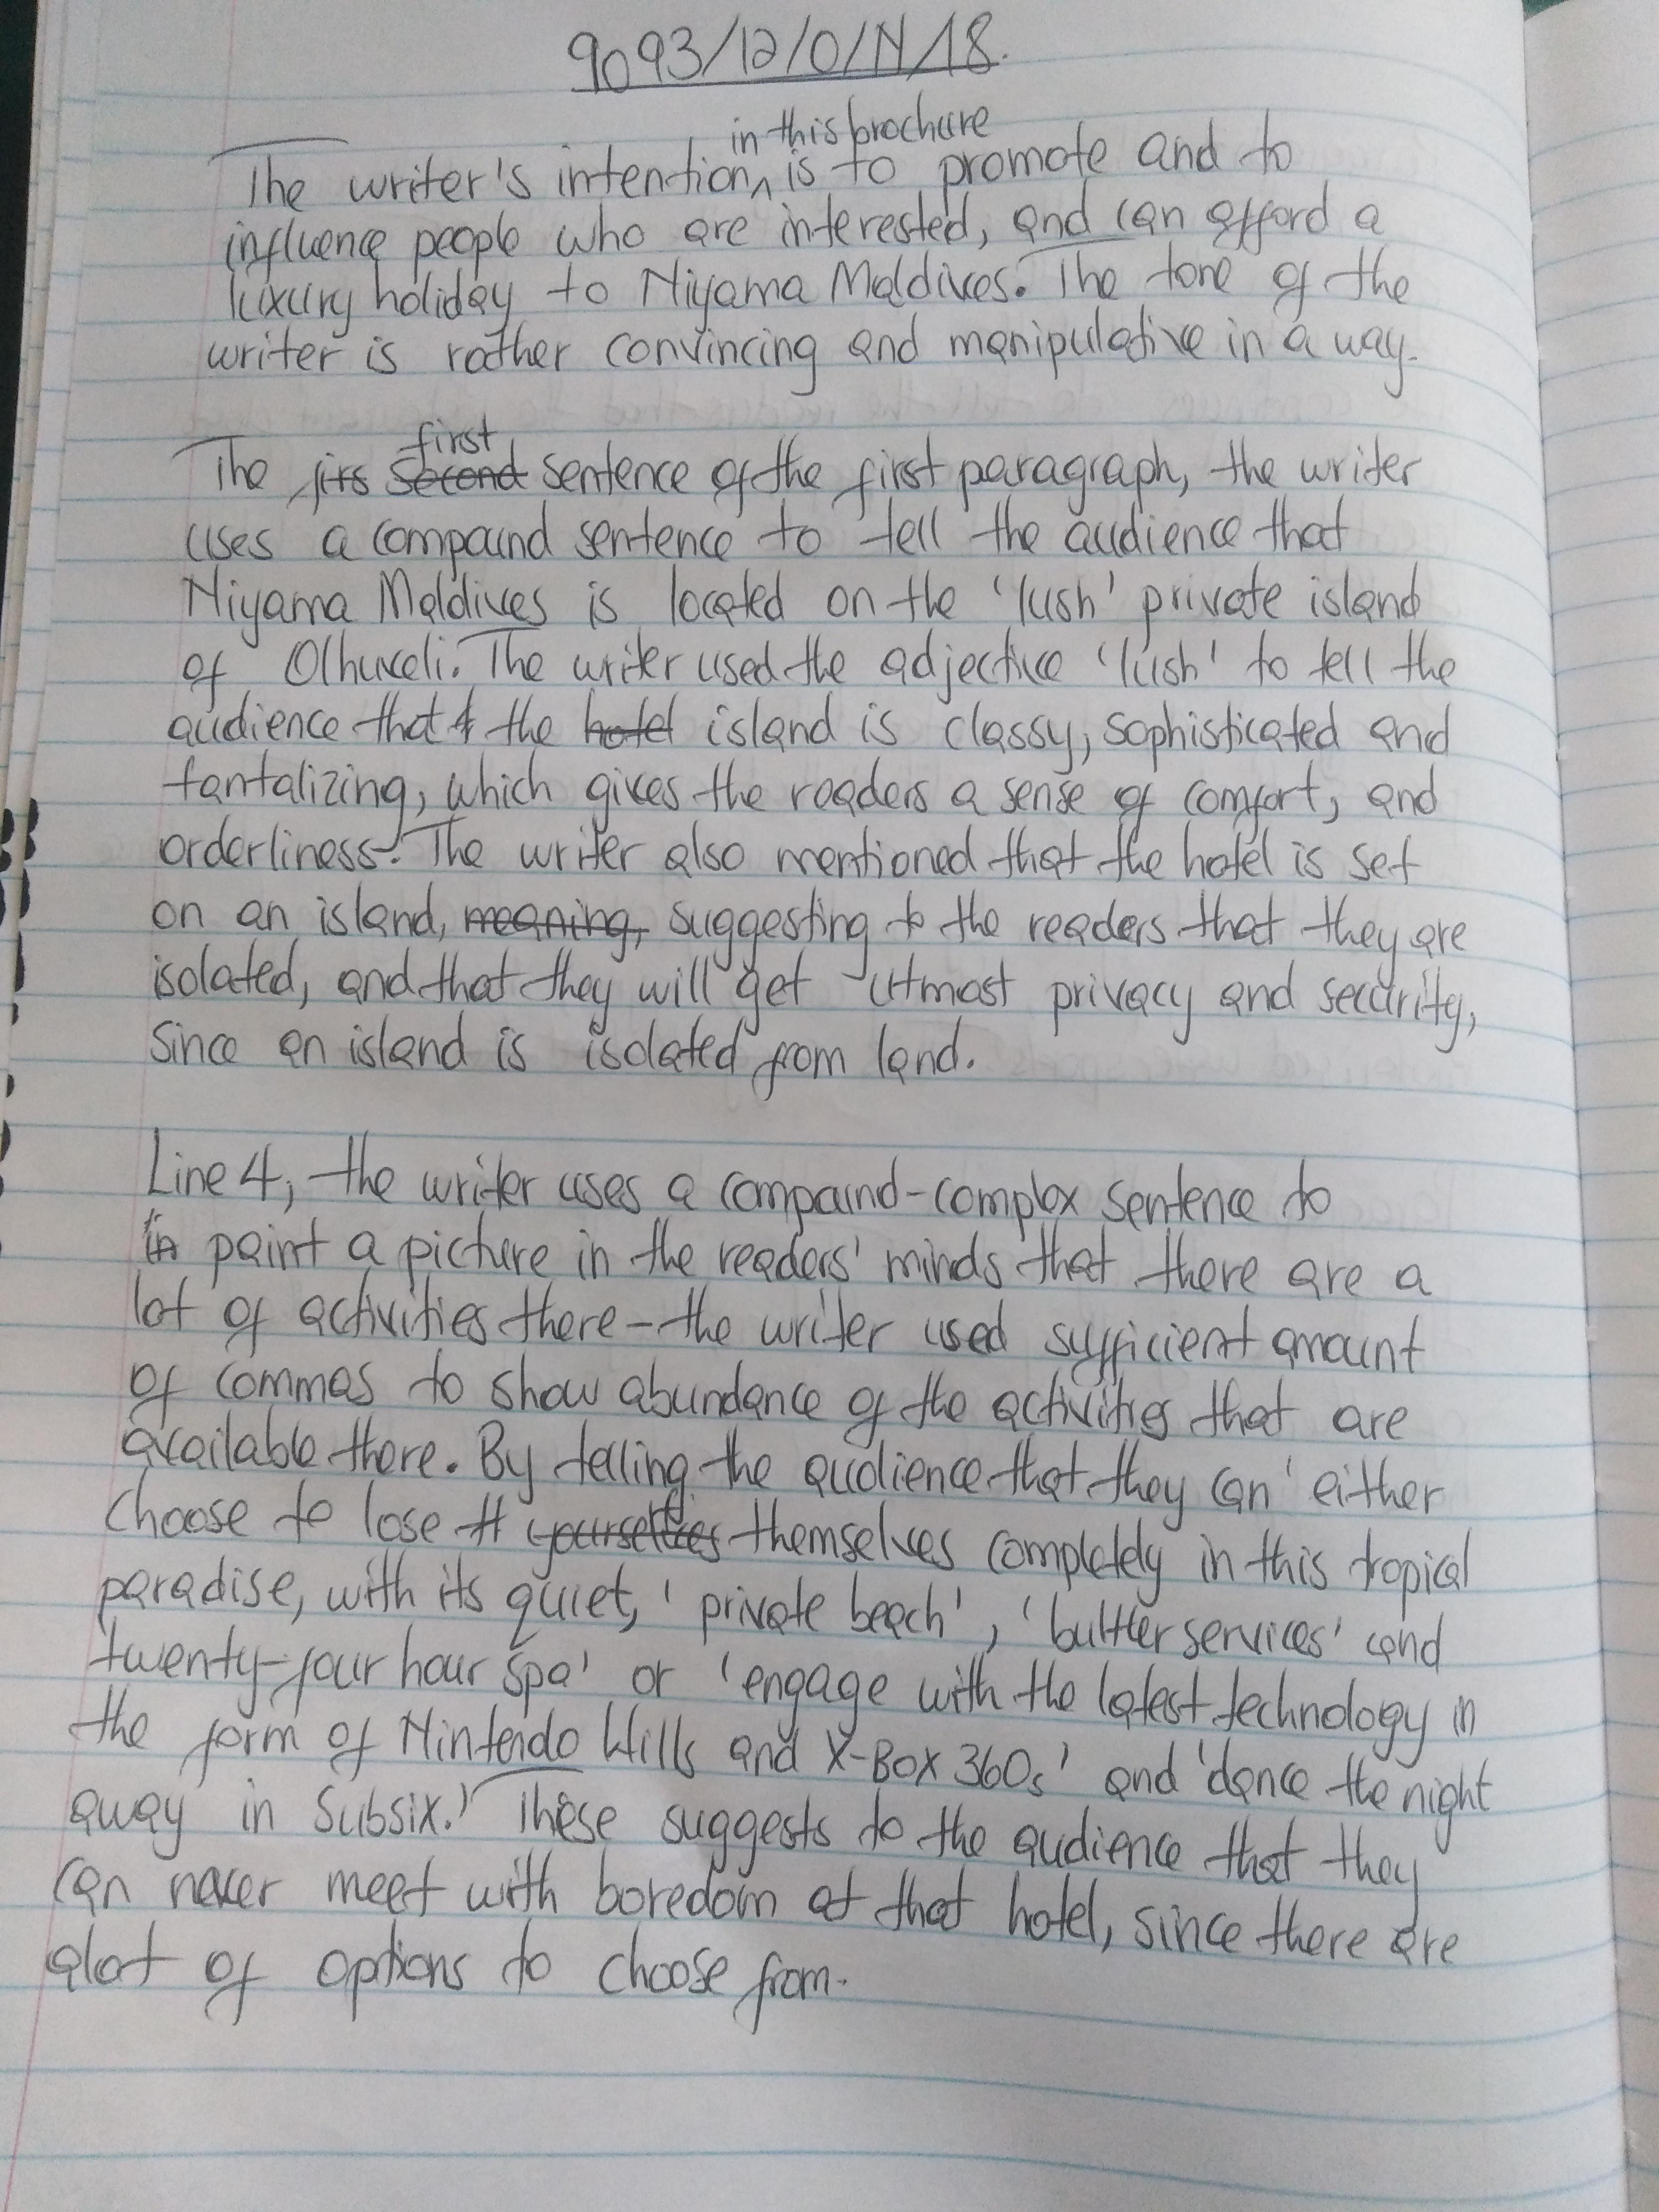 9093/12/O/N/18.
in this brochure
The writer's intention, is to promote and to
influence people who are interested, and can afford a
luxury holiday to Niyama Maldives. The tone of the
writer is rather convincing and manipulative in a way.
first
The firs second sentence of the first paragraph, the writer
uses a compound sentence to tell the audience that
Niyama Maldives is located on the 'lush' private island
of Olhuveli. The writer used the adjective 'lush' to tell the
audience that the hotel island is classy, sophisticated and
tantalizing, which gives the readers a sense of comfort, and
orderliness. The writer also mentioned that the hotel is set
on an island, meaning, suggesting to the readers that they are
isolated, and that they will get utmost privacy and security,
since an island is isolated from land.
Line 4, the writer uses a compound-complex sentence to
in paint a picture in the readers' minds that there are a
lot of activities there - the writer used sufficient amount
of commas to show abundance of the activities that are
available there. By telling the audience that they can 'either
choose to lose yourselves themselves completely in this tropical
paradise, with its quiet, 'private beach', 'buttler services' and
twenty-four hour spa' or 'engage with the latest technology in
the form of Nintendo Wills and X-Box 360s' and 'dance the night
away in Subsix.' These suggests to the audience that they
can never meet with boredom at that hotel, since there are
alot of options to choose from.